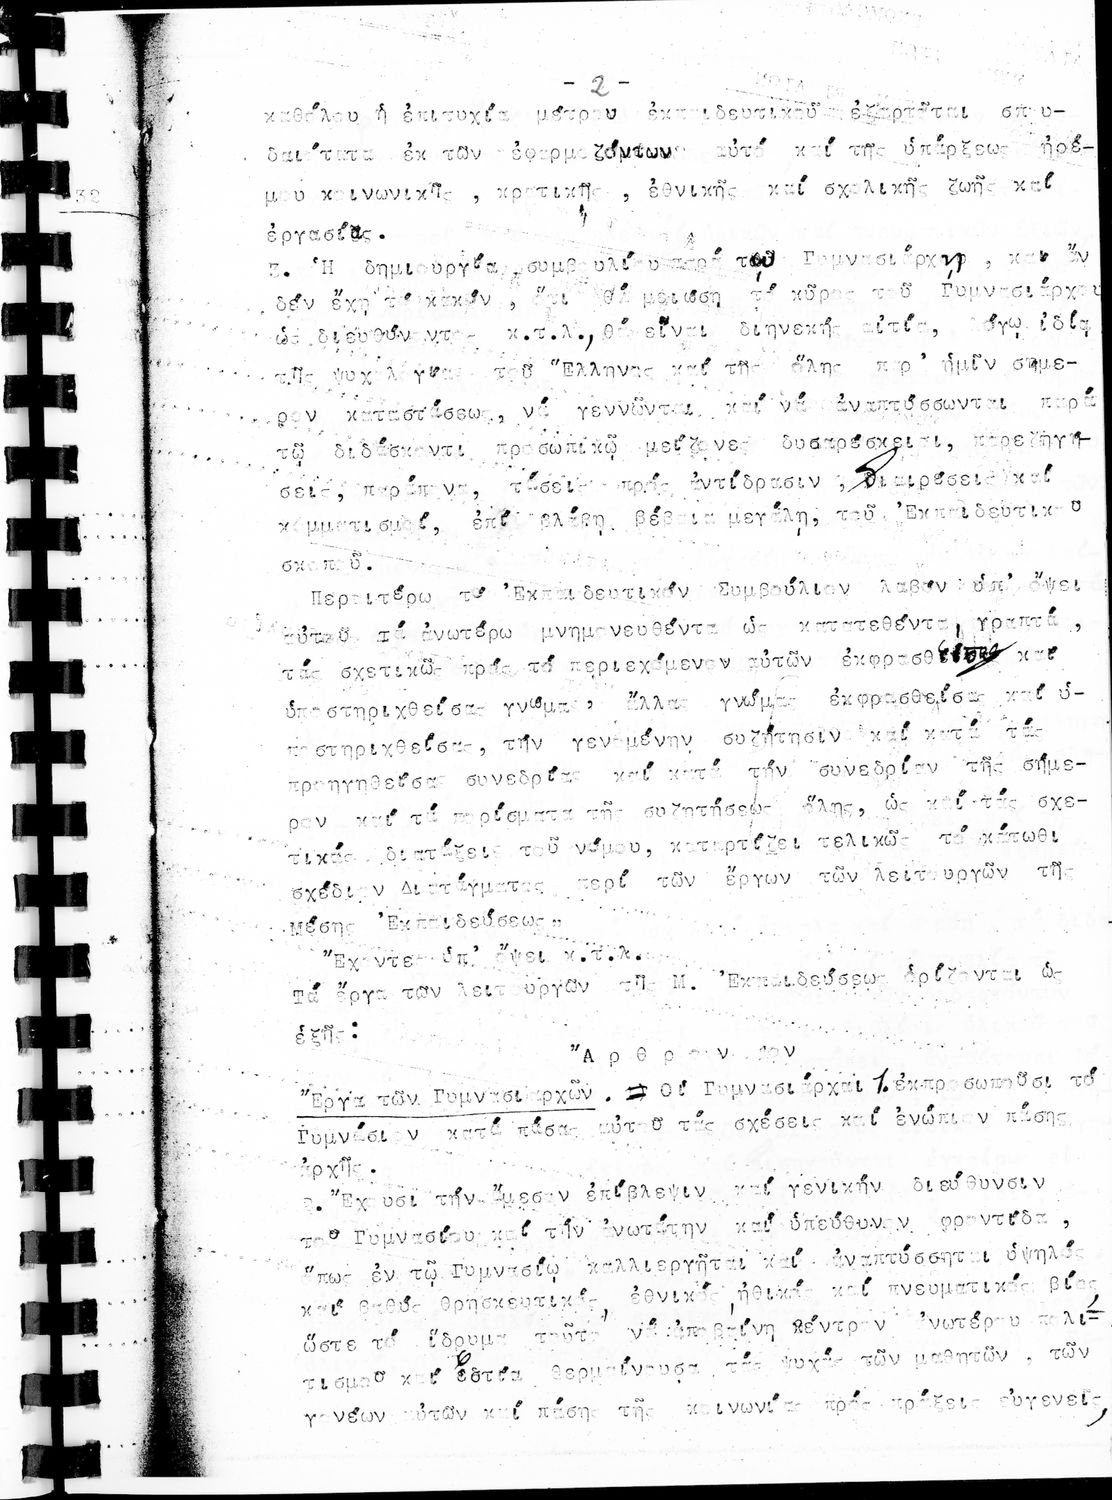 - 2 -
καθόλου ἡ ἐπιτυχία μέτρου ἐκπαιδευτικοῦ ἐξαρτᾶται σπου-
δαιότατα ἐκ τῶν ἐφαρμοζόντων αὐτό καί τῆς ὑπάρξεως ἠρέ-
μου κοινωνικῆς , κρατικῆς , ἐθνικῆς καί σχολικῆς ζωῆς καί
32
ἐργασίας.
3. Ἡ δημιουργία συμβουλίου παρά τῷ Γυμνασιάρχῃ , καί ἄν
δέν ἔχῃ τό κακόν , ὅτι θά μειώσῃ τό κῦρος τοῦ Γυμνασιάρχου
ὡς διευθύνοντος κ.τ.λ., θά εἶναι διηνεκής αἰτία, λόγῳ ἰδίᾳ
τῆς ψυχολογίας τοῦ Ἕλληνος καί τῆς ὅλης παρ' ἡμῖν σήμε-
ρον καταστάσεως, νά γεννῶνται καί νά ἀναπτύσσωνται παρά
τῷ διδάσκοντι προσωπικῷ μείζονες δυσαρέσκειαι, παρεξηγή-
σεις, παράπονα, τάσεις πρός ἀντίδρασιν , διαιρέσεις καί
κομματισμοί, ἐπί βλάβῃ βέβαια μεγάλῃ, τοῦ Ἐκπαιδευτικοῦ
σκοποῦ.
Περαιτέρω τό Ἐκπαιδευτικόν Συμβούλιον λαβόν ὑπ' ὄψει
αὐτοῦ τά ἀνωτέρω μνημονευθέντα ὡς κατατεθέντα, γραπτά ,
τάς σχετικῶς πρός τό περιεχόμενον αὐτῶν ἐκφρασθείσας καί
ὑποστηριχθείσας γνώμας, ἄλλας γνώμας ἐκφρασθείσας καί ὑ-
ποστηριχθείσας, τήν γενομένην συζήτησιν καί κατά τάς
προηγηθείσας συνεδρίας καί κατά τήν συνεδρίαν τῆς σήμε-
ρον καί τά πορίσματα τῆς συζητήσεως ὅλης, ὡς καί τάς σχε-
τικάς διατάξεις τοῦ νόμου, καταρτίζει τελικῶς τό κάτωθι
σχέδιον Διατάγματος περί τῶν ἔργων τῶν λειτουργῶν τῆς
Μέσης Ἐκπαιδεύσεως"
"Ἔχοντες ὑπ' ὄψει κ.τ.λ.
Τά ἔργα τῶν λειτουργῶν τῆς Μ. Ἐκπαιδεύσεως ὁρίζονται ὡς
ἑξῆς:
Ἄ ρ θ ρ ο ν
Ἔργα τῶν Γυμνασιαρχῶν . = Οἱ Γυμνασιάρχαι 1. ἐκπροσωποῦσι τό
Γυμνάσιον κατά πάσας αὐτοῦ τάς σχέσεις καί ἐνώπιον πάσης
ἀρχῆς.
2. Ἔχουσι τήν ἄμεσον ἐπίβλεψιν καί γενικήν διεύθυνσιν
τοῦ Γυμνασίου καί τήν ἀνωτάτην καί ὑπεύθυνον φροντίδα ,
ὅπως ἐν τῷ Γυμνασίῳ καλλιεργῆται καί ἀναπτύσσηται ὑψηλός
καί βαθύς θρησκευτικός, ἐθνικός, ἠθικός καί πνευματικός βίος,
ὥστε τό ἵδρυμα τοῦτο νά ἀποβαίνῃ κέντρον ἀνωτέρου πολι-
τισμοῦ καί ἑστία θερμαίνουσα τάς ψυχάς τῶν μαθητῶν , τῶν
γονέων αὐτῶν καί πάσης τῆς κοινωνίας πρός πράξεις εὐγενεῖς,